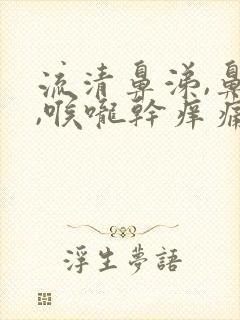 流清鼻涕,鼻
,喉嚨幹痒痛
浮生夢語